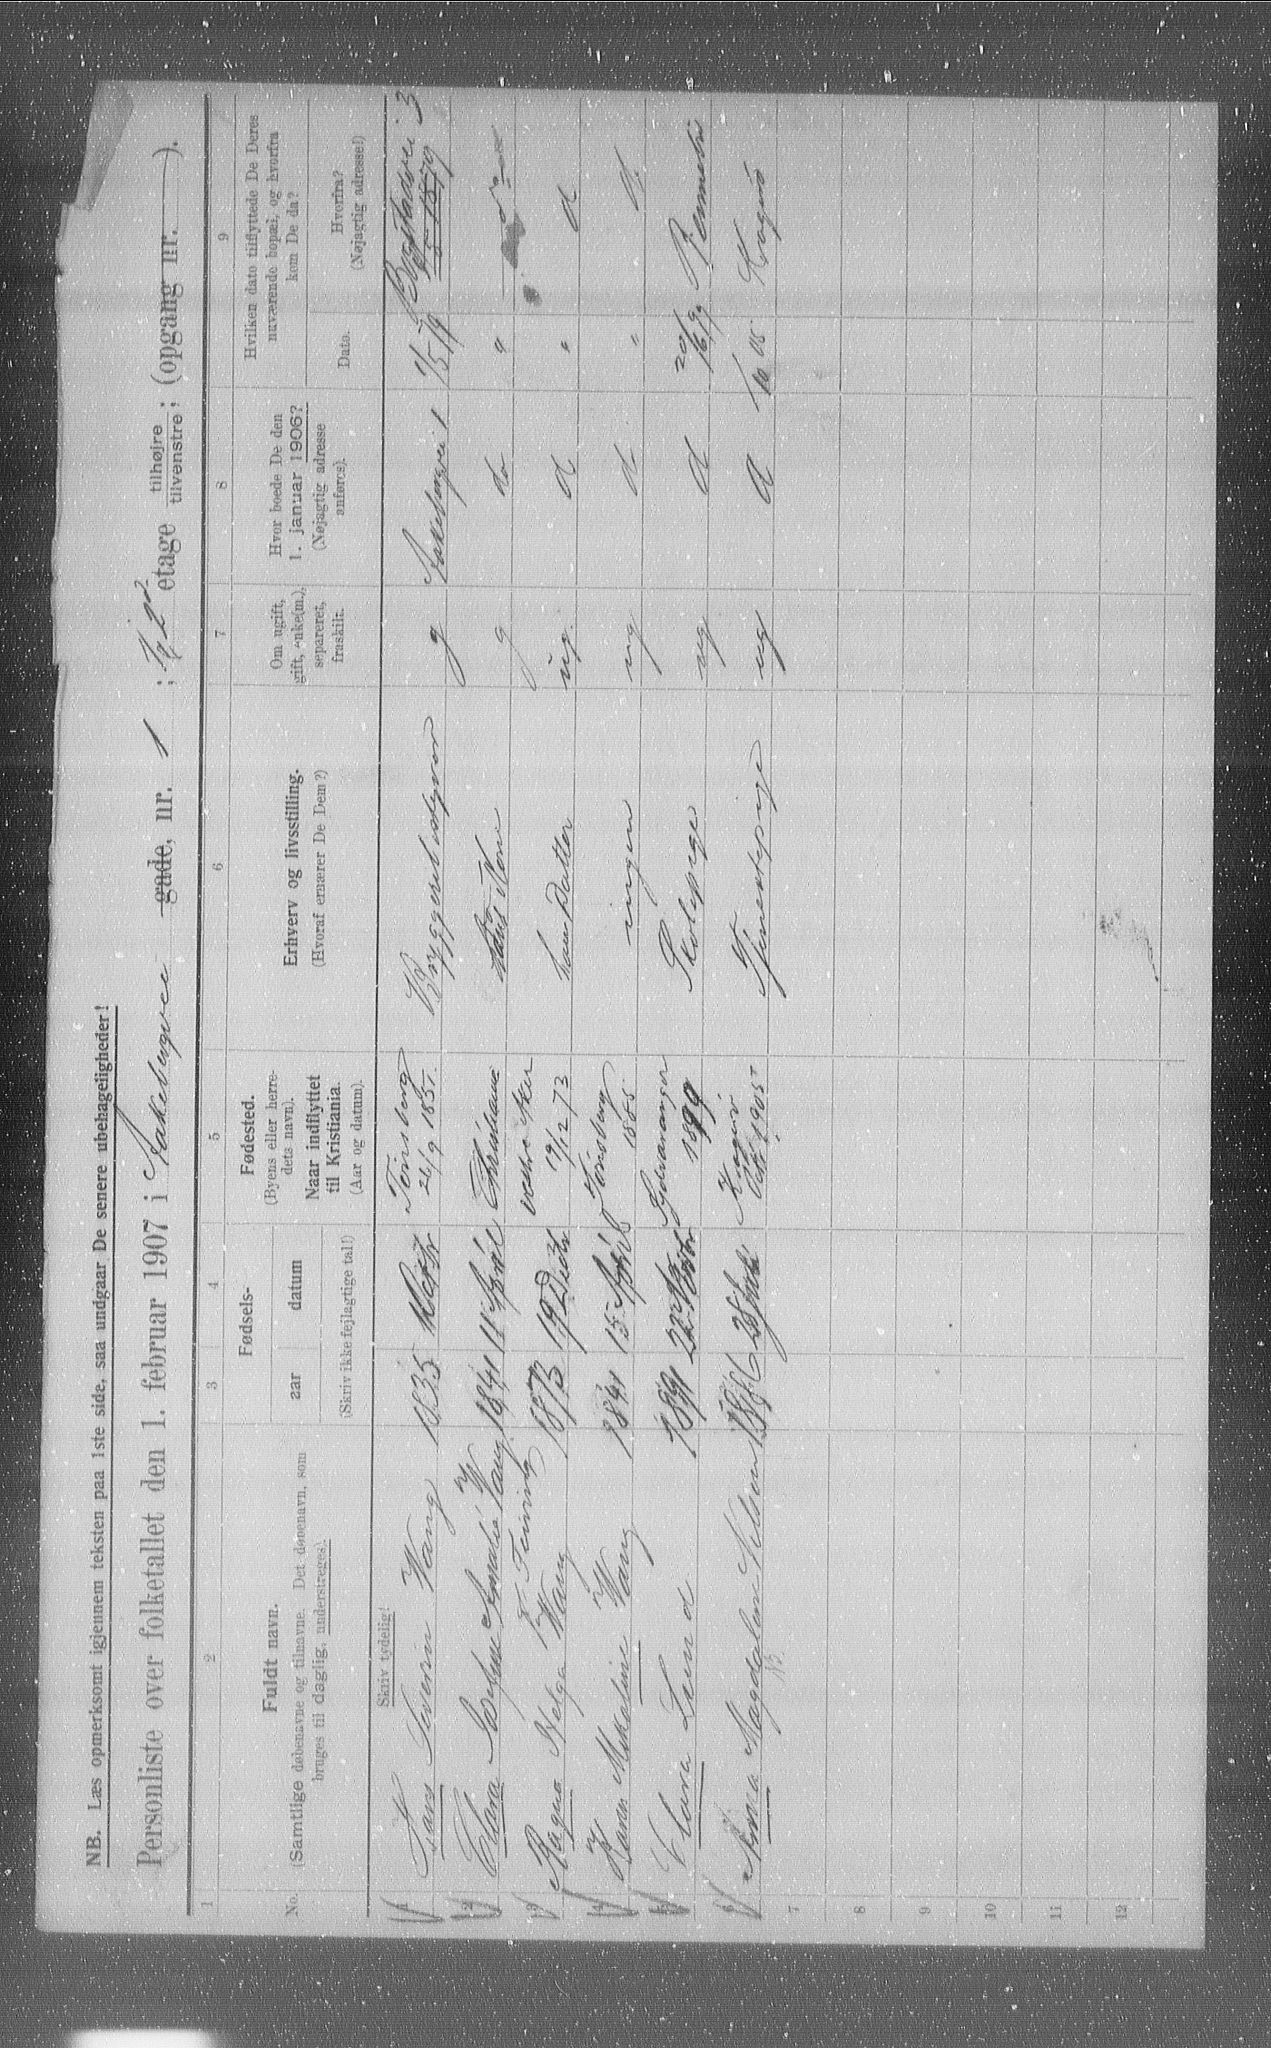 NB. Læs opmerksomt igjennem teksten paa 1ste side, saa undgaar De senere ubehageligheder!
Personliste over folketallet den 1. februar 1907 i Akebergvei gade, nr. 1 ; etage tilhøjre tilvenstre ; (opgang nr. ).
1 2 3 4 5 6 7 8 9
No.
Fuldt navn.
(Samtlige døbenavne og tilnavne. Det døbenavn, som
bruges til daglig, understreges).
Fødsels-
aar datum
(Skriv ikke fejlagtige tal!)
Fødested.
(Byens eller herre-
dets navn).
Naar indflyttet
til Kristiania.
(Aar og datum).
Erhverv og livsstilling.
(Hvoraf ernærer De Dem?)
Om ugift,
gift, enke(m.),
separeret,
fraskilt.
Hvor boede De den
1. januar 1906?
(Nøjagtig adresse
anføres).
Hvilken dato tilflyttede De Deres
nuværende bopæl, og hvorfra
kom De da?
Dato.
Hvorfra?
(Nøjagtig adresse!)
Skriv tydelig!
Hans Severin Wang 1835 Tønsberg Bryggeribestyrer g Akebergvei 1
2 Clara Josefine Amalie Wang 1841 11 April Christiania Kone g do "
3 Ragna Helga Wang 1873 19 Decbr vestre Aker 19/12 73 hans Datter ug. d " d
4 Karen Mikaline Wang 1841 15 April Tønsberg 1885 ingen ug d "
5 Clara Lund Sydvaranger 1899 Skolepige ug d
6 Anna Magdalene Nilsen Kragerø 1905 Tjenestepige ug d Kragerø
7
8
9
10
11
12